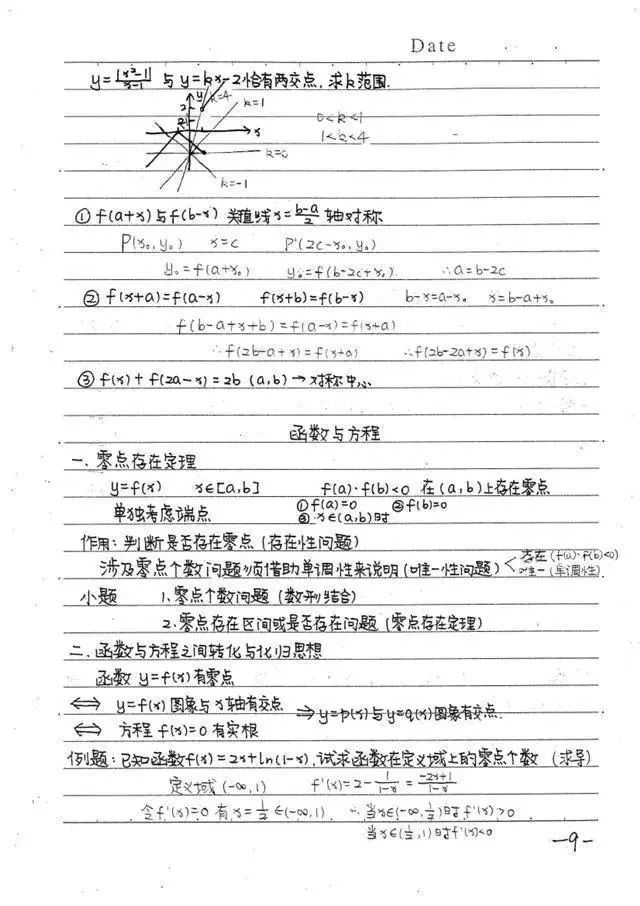 Date
y=|x²-1|/x-1 与 y=kx-2恰有两交点,求k范围.
y k=4 k=1
2
x
0<k<1
1<k<4
k=0
k=-1
① f(a+x)与f(b-x) 关直线x=b-a/2 轴对称
P(x₀,y₀) x=c P'(2c-x₀,y₀)
y₀=f(a+x₀) y₀=f(b-2c+x₀) ∴a=b-2c
② f(x+a)=f(a-x) f(x+b)=f(b-x) b-x=a-x₀ x=b-a+x₀
f(b-a+x+b)=f(a-x)=f(x+a)
∴f(2b-a+x)=f(x+a) ∴f(2b-2a+x)=f(x)
③ f(x)+f(2a-x)=2b (a,b)→对称中心
函数与方程
一.零点存在定理
y=f(x) x∈[a,b] f(a)·f(b)<0 在(a,b)上存在零点
单独考虑端点 ①f(a)=0 ②f(b)=0
③ x∈(a,b)时
作用:判断是否存在零点(存在性问题)
涉及零点个数问题须借助单调性来说明(唯一性问题) 存在(f(a)·f(b)<0)
唯一(单调性)
小题 1.零点个数问题(数形结合)
2.零点存在区间或是否存在问题(零点存在定理)
二.函数与方程之间转化与化归思想
函数 y=f(x)有零点
⟺ y=f(x)图象与x轴有交点 ⇒y=p(x)与y=q(x)图象有交点.
⟺ 方程 f(x)=0 有实根
例题:已知函数f(x)=2x+ln(1-x),试求函数在定义域上的零点个数(求导)
定义域(-∞,1) f'(x)=2-1/1-x=-2x+1/1-x
令f'(x)=0 有x=1/2∈(-∞,1) ∴当x∈(-∞,1/2)时f'(x)>0
当x∈(1/2,1)时f'(x)<0
-9-